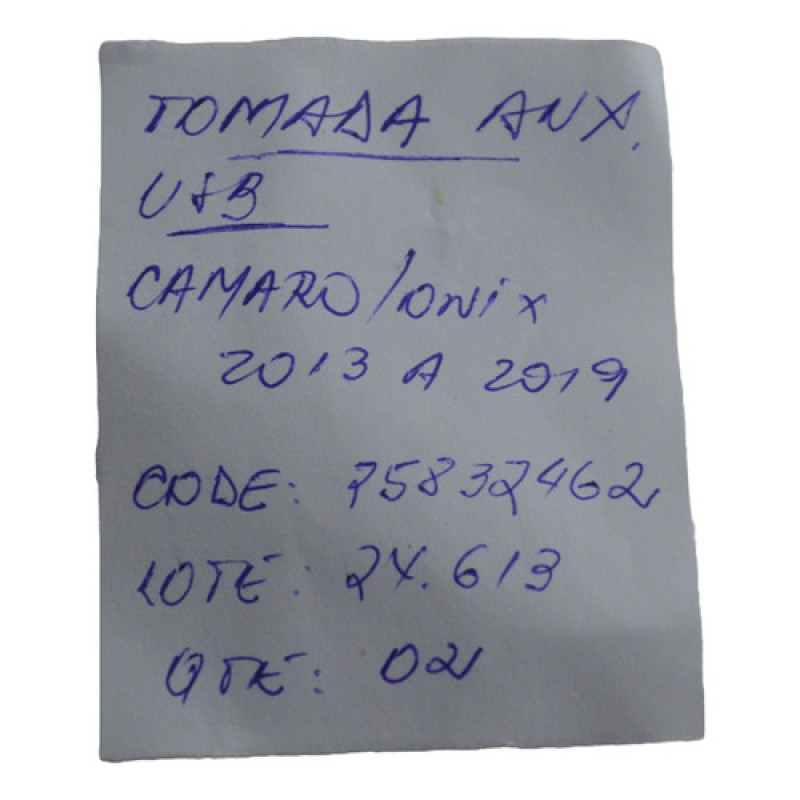 TOMADA AUX.
USB
CAMARO/ONIX
2013 A 2019
CODE: 75832462
LOTE: 24.613
QTE: 02